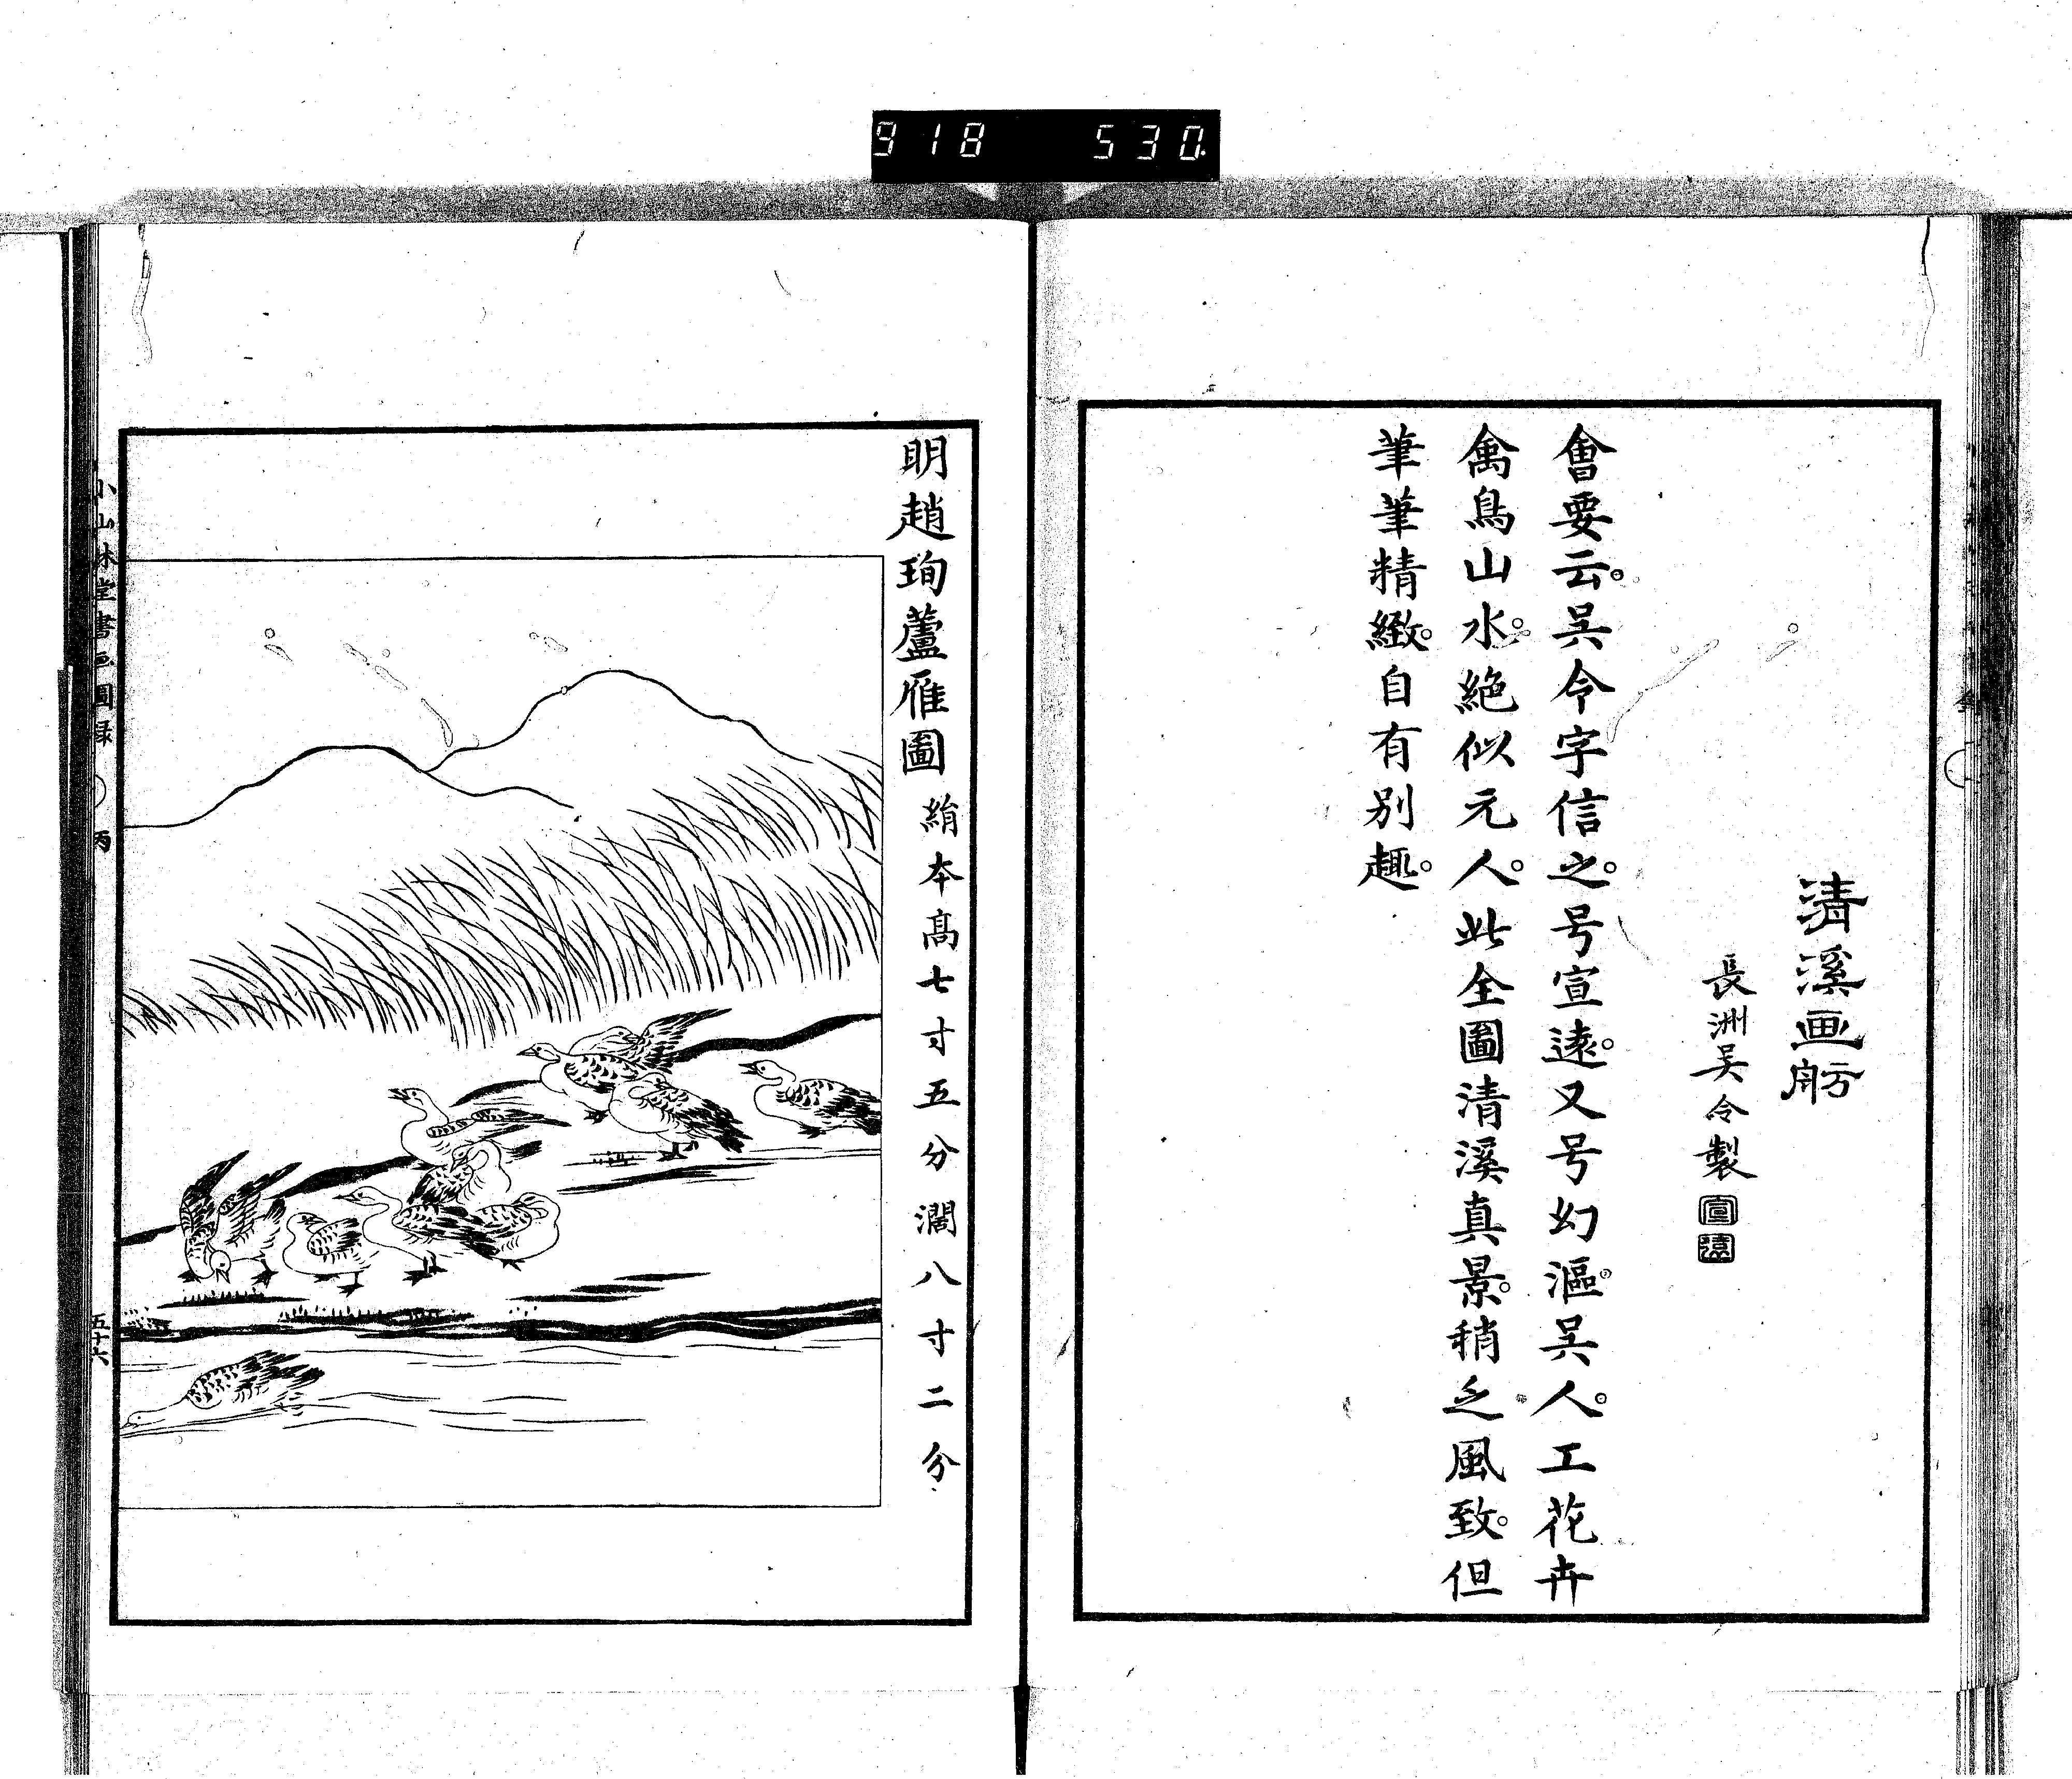 918 530
清溪画舫
長洲吴令製
宣
遠
會要云。吴令字信之。号宣遠。又号幻漚。吴人。工花卉
禽鳥山水。絶似元人。此全圖清溪真景。稍乏風致。但
筆筆精緻。自有別趣。
明趙珣蘆雁圖 絹本高七寸五分濶八寸二分
小山林堂書画圖録 丙 五十六